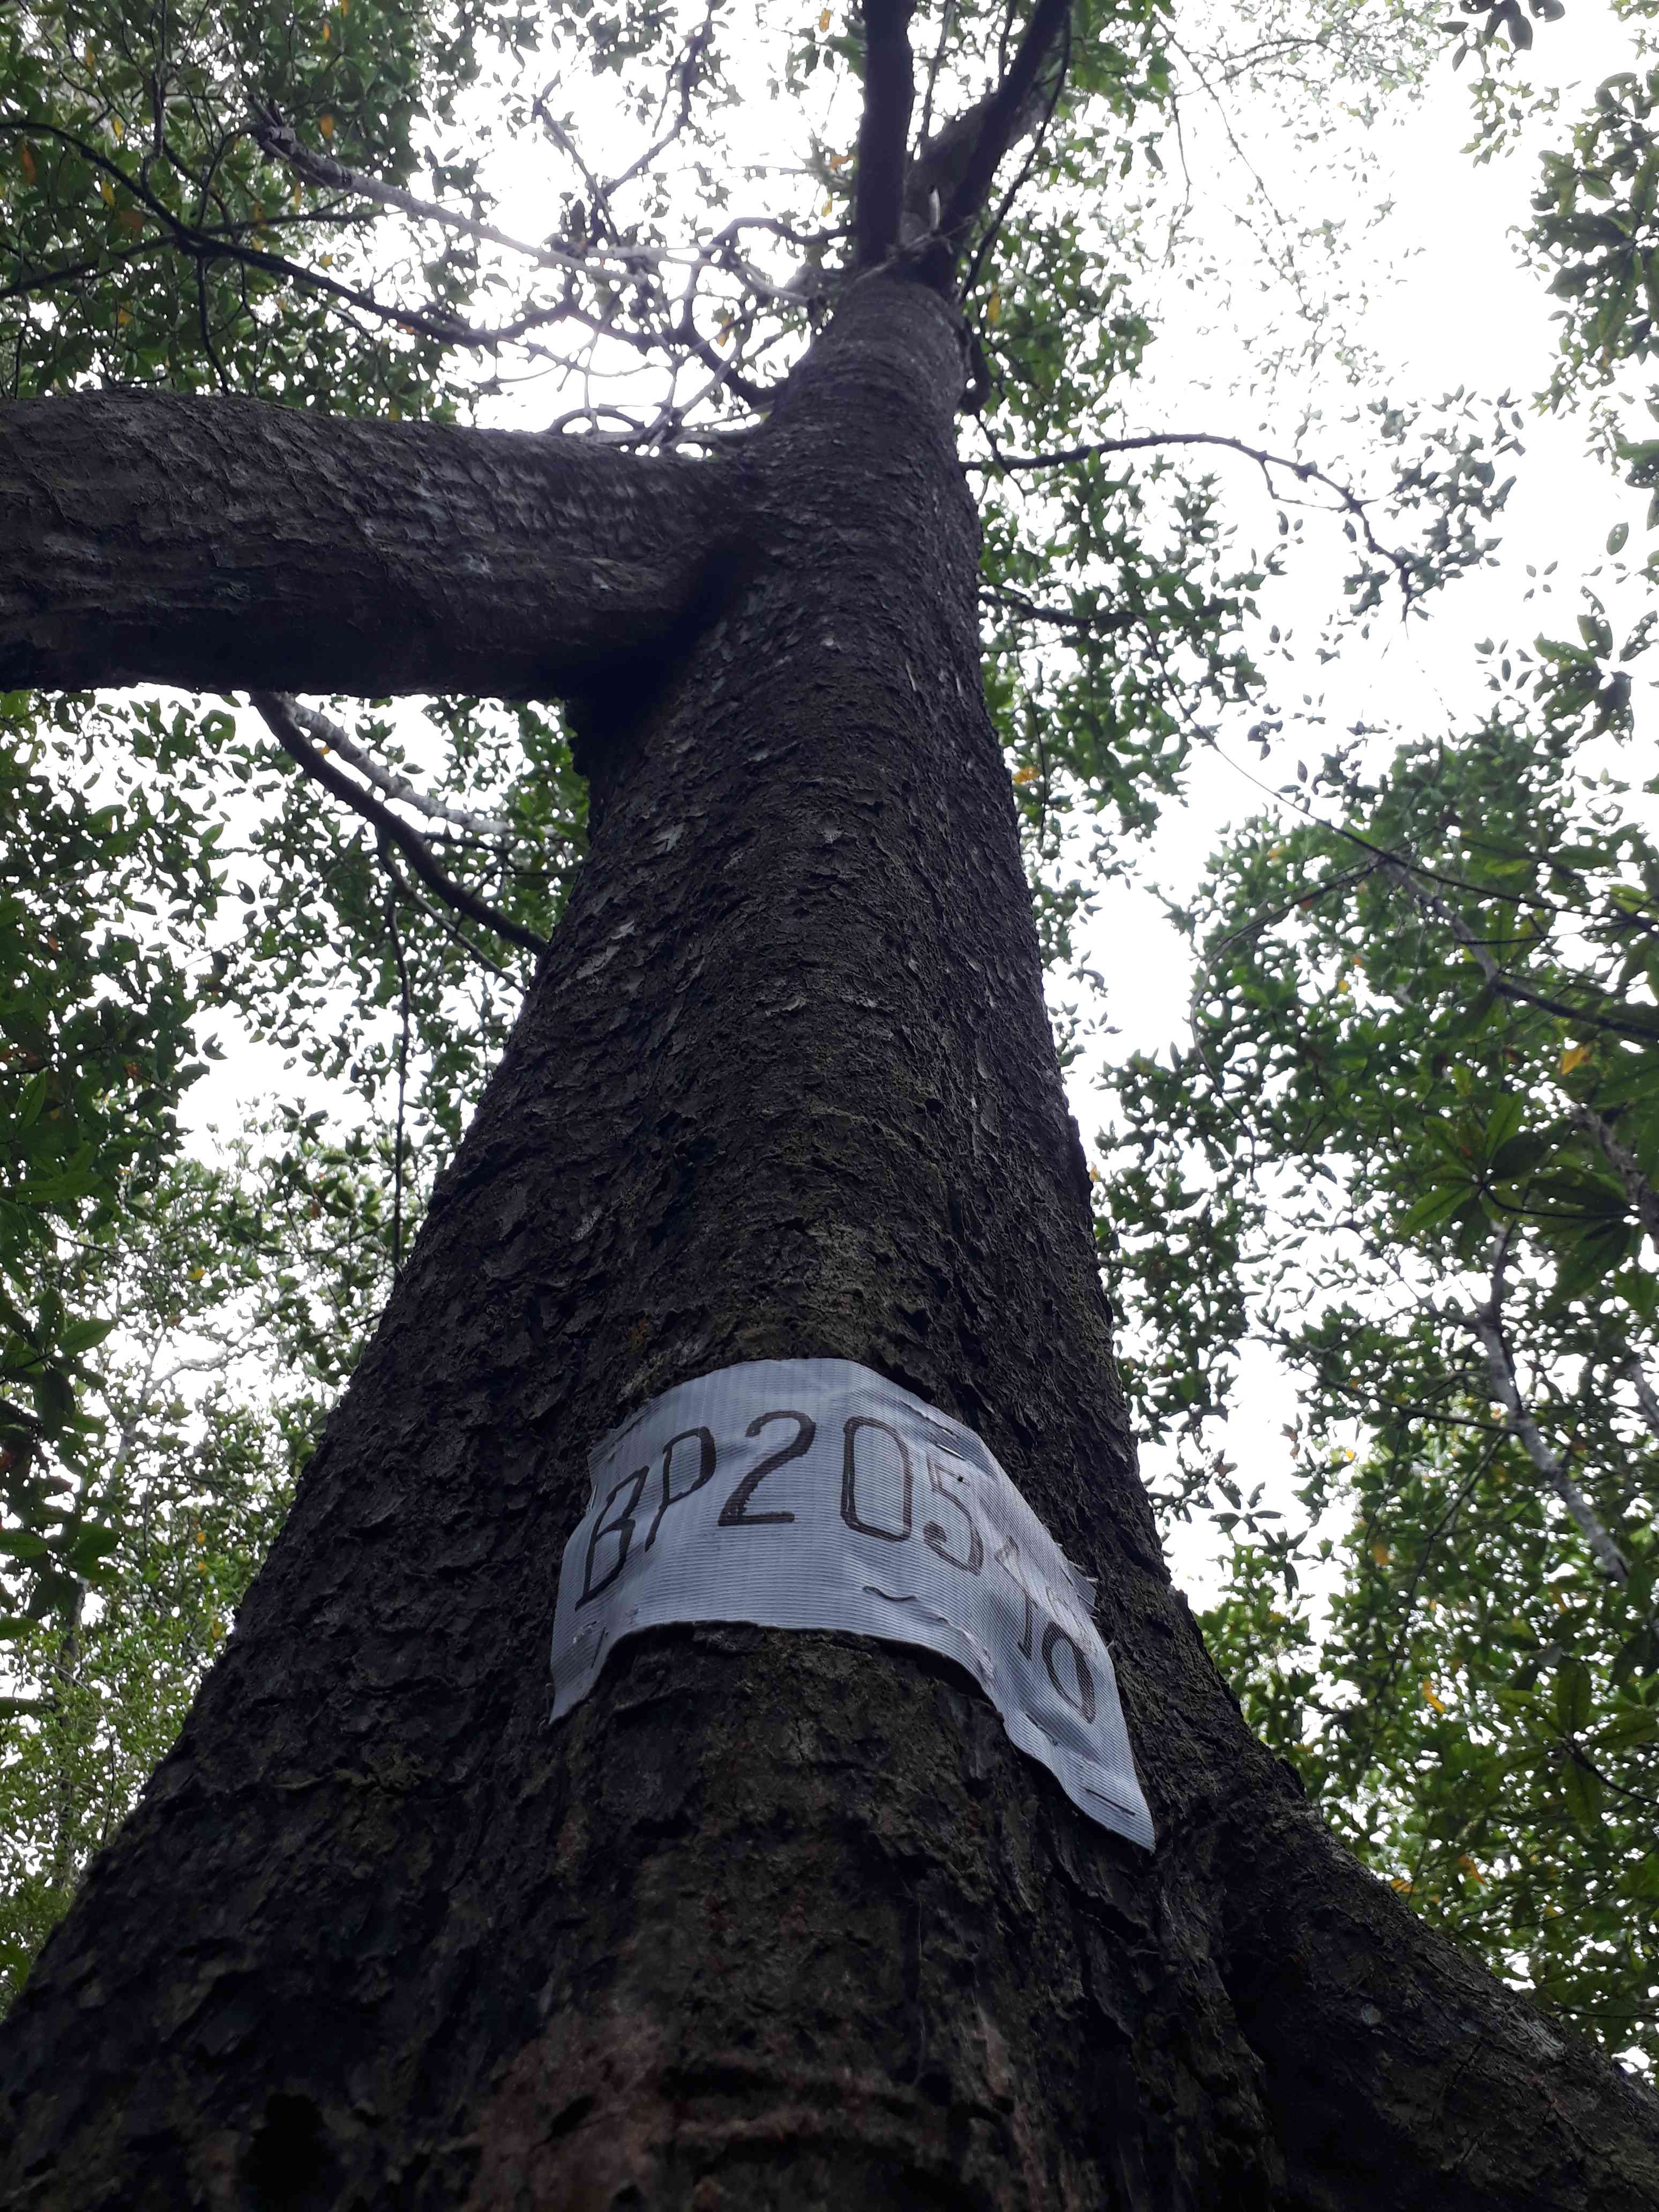 BP205
10